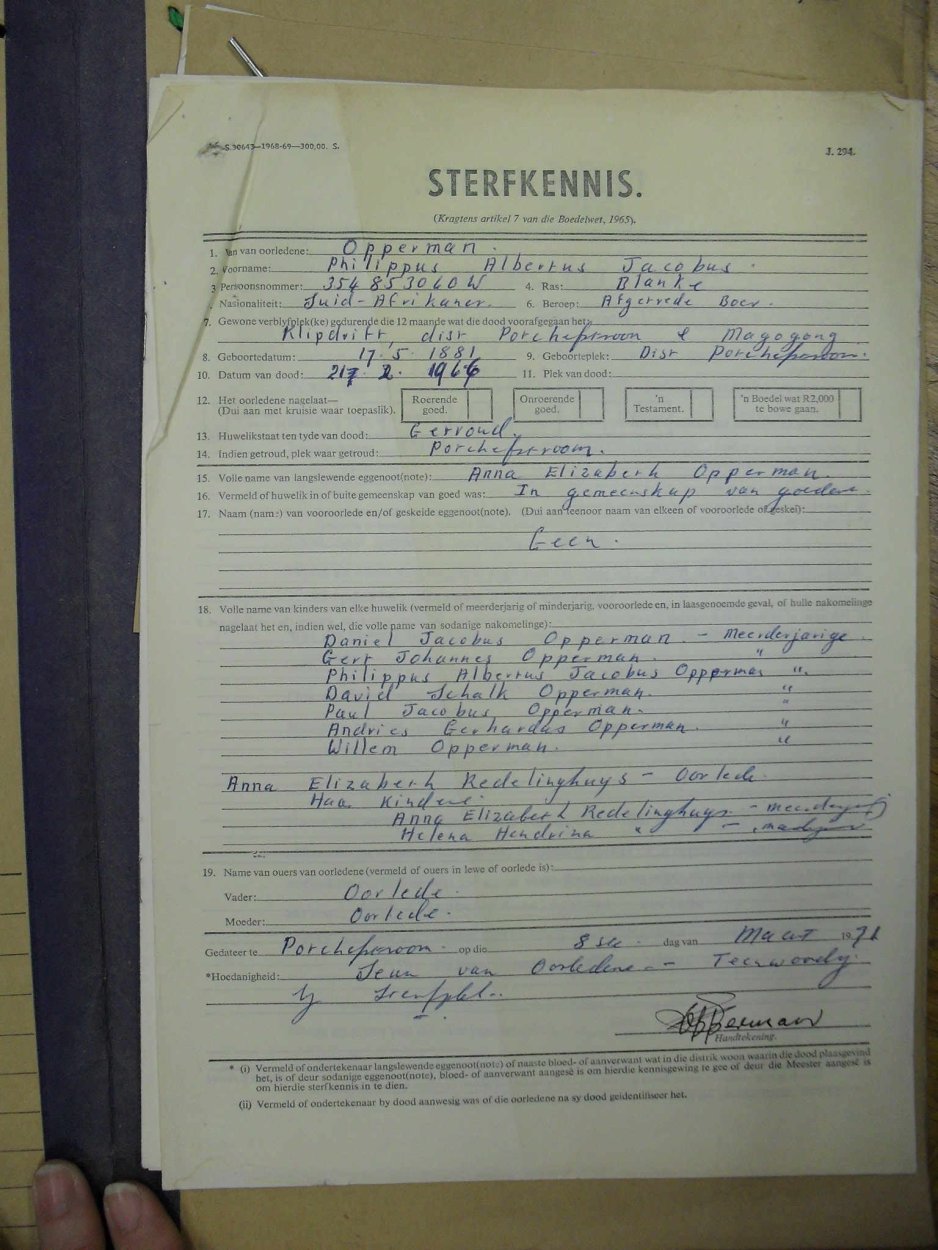 S.30643—1968-69—300,00. S. J. 294.
STERFKENNIS.
(Kragtens artikel 7 van die Boedelwet, 1965).
1. Van van oorledene: Opperman.
2. Voorname: Philippus Albertus Jacobus.
3. Persoonsnommer: 354 853040 W 4. Ras: Blanke
Nasionaliteit: Suid-Afrikaner. 6. Beroep: Afgetrede Boer.
7. Gewone verblyfplek(ke) gedurende die 12 maande wat die dood voorafgegaan het:
Klipdrift, distr Potchefstroom & Magogong
8. Geboortedatum: 17. 5. 1881 9. Geboorteplek: Distr Potchefstroom.
10. Datum van dood: 2. 1966 11. Plek van dood:
12. Het oorledene nagelaat— (Dui aan met kruisie waar toepaslik). Roerende goed. Onroerende goed. 'n Testament. 'n Boedel wat R2,000 te bowe gaan.
13. Huwelikstaat ten tyde van dood: Getroud.
14. Indien getroud, plek waar getroud: Potchefstroom.
15. Volle name van langslewende eggenoot(note): Anna Elizabeth Opperman.
16. Vermeld of huwelik in of buite gemeenskap van goed was: In gemeenskap van goedere.
17. Naam (name) van vooroorlede en/of geskeide eggenoot(note). (Dui aan teenoor naam van elkeen of vooroorlede of geskei):
Geen.
18. Volle name van kinders van elke huwelik (vermeld of meerderjarig of minderjarig, vooroorlede en, in laasgenoemde geval, of hulle nakomelinge
nagelaat het en, indien wel, die volle name van sodanige nakomelinge):
Daniel Jacobus Opperman - Meerderjarige
Gert Johannes Opperman. "
Philippus Albertus Jacobus Opperman ".
David Schalk Opperman. "
Paul Jacobus Opperman. "
Andries Gerhardus Opperman. "
Willem Opperman. "
Anna Elizabeth Redelinghuys - Oorlede.
Haar Kinders
Anna Elizabeth Redelinghuys - meerderjarig
Helena Hendrina " -
19. Name van ouers van oorledene (vermeld of ouers in lewe of oorlede is):
Vader: Oorlede.
Moeder: Oorlede.
Gedateer te Potchefstroom. op die 8 ste dag van Maart 1971
*Hoedanigheid: Seun van Oorledene - Teenwoordig
by Sterfplek.
Opperman
Handtekening.
* (i) Vermeld of ondertekenaar langslewende eggenoot(note) of naaste bloed- of aanverwant wat in die distrik woon waarin die dood plaasgevind
het, is of deur sodanige eggenoot(note), bloed- of aanverwant aangesê is om hierdie kennisgewing te gee of deur die Meester aangesê is
om hierdie sterfkennis in te dien.
(ii) Vermeld of ondertekenaar by dood aanwesig was of die oorledene na sy dood geïdentifiseer het.